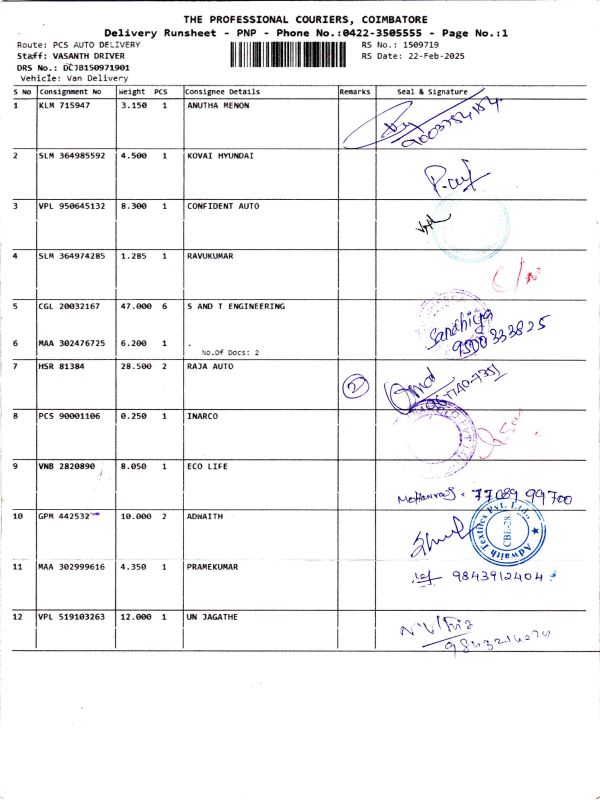 THE PROFESSIONAL COURIERS, COIMBATORE
Delivery Runsheet - PNP - Phone No.:0422-3505555 - Page No.:1
Route: PCS AUTO DELIVERY RS No.: 1509719
Staff: VASANTH DRIVER RS Date: 22-Feb-2025
DRS No.: DCJB150971901
Vehicle: Van Delivery
S No Consignment No Weight PCS Consignee Details Remarks Seal & Signature
1 KLM 715947 3.150 1 ANUTHA MENON
2 SLM 364985592 4.500 1 KOVAI HYUNDAI
3 VPL 950645132 8.300 1 CONFIDENT AUTO
4 SLM 364974285 1.285 1 RAVUKUMAR
C/N
5 CGL 20032167 47.000 6 S AND T ENGINEERING
Sandhiya
9500333825
6 MAA 302476725 6.200 1 .
No.Of Docs: 2
7 HSR 81384 28.500 2 RAJA AUTO 2
8 PCS 90001106 0.250 1 INARCO
9 VNB 2820890 8.050 1 ECO LIFE
Mohanraj. 77089 99700
10 GPM 442532 10.000 2 ADWAITH
Adwaith Textiles Pvt. Ltd.,
CBE-28
11 MAA 302999616 4.350 1 PRAMEKUMAR
9843912404
12 VPL 519103263 12.000 1 UN JAGATHE